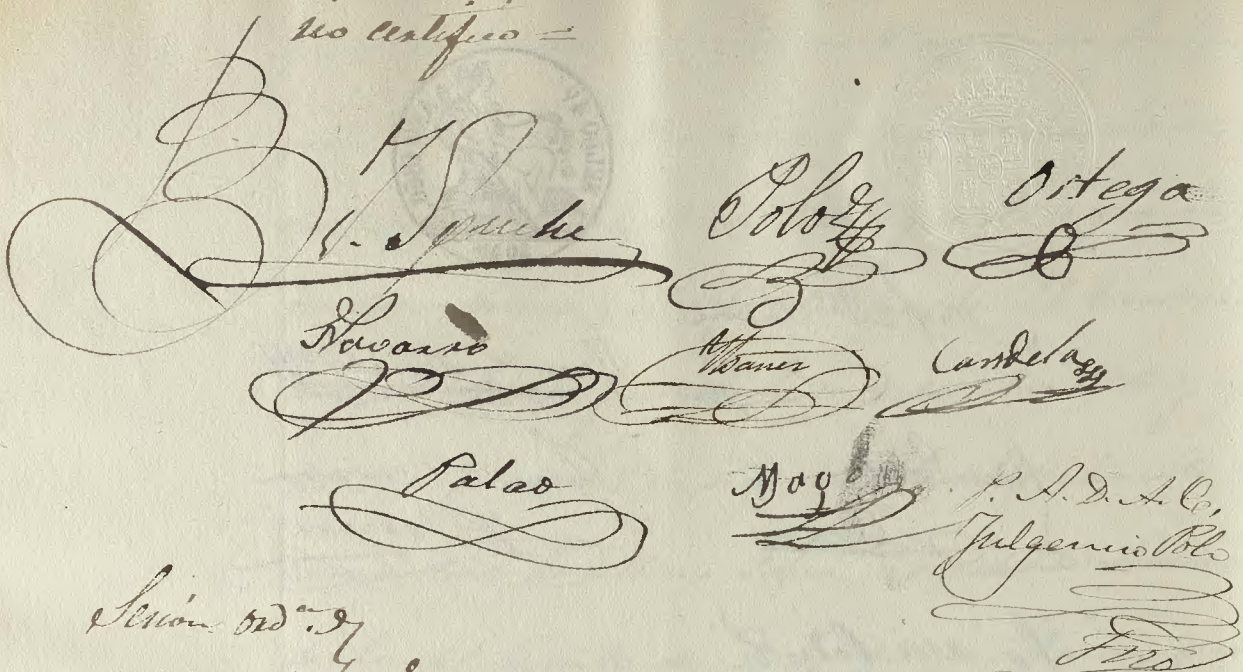 no certifico =
Polo Ortega
Navarro Ibañez Candela
Palao May
P. A. D. A. C.
Fulgencio Polo
Srio
Sesión ord.ª de